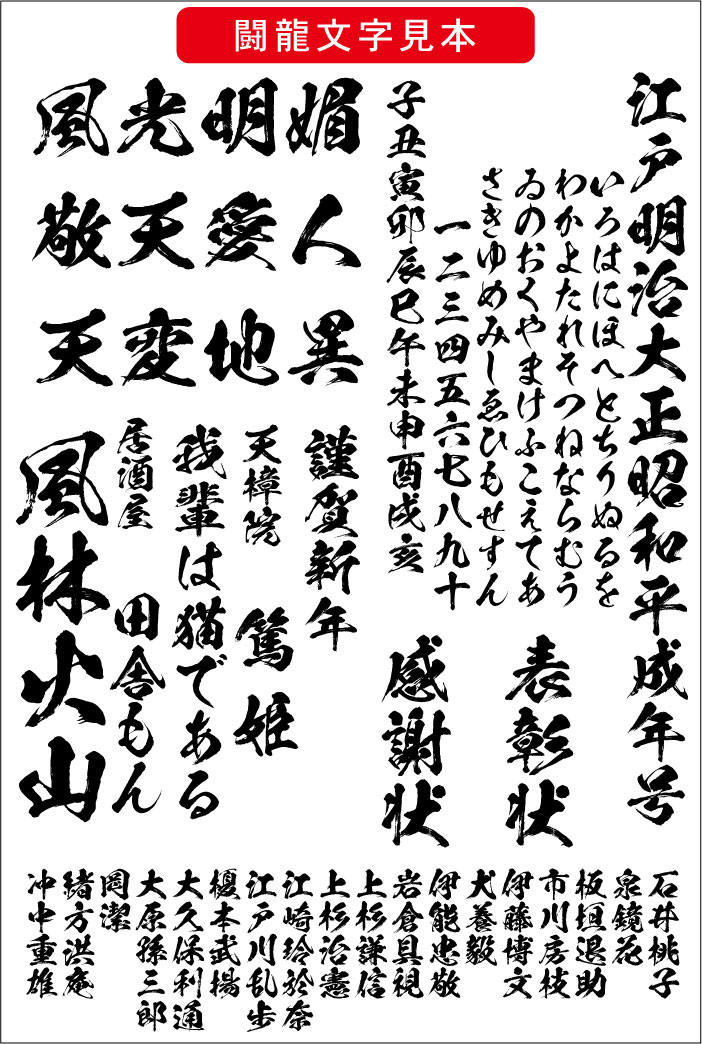 闘龍文字見本
江戸明治大正昭和平成年号
いろはにほへとちりぬるを
わかよたれそつねならむう
ゐのおくやまけふこえてあ
さきゆめみしゑひもせすん
一二三四五六七八九十
子丑寅卯辰巳午未申酉戌亥
表彰状
感謝状
風光明媚
敬天愛人
天変地異
謹賀新年
天樟院 篤姫
我輩は猫である
居酒屋 田舎もん
風林火山
石井桃子
泉鏡花
板垣退助
市川房枝
伊藤博文
犬養毅
伊能忠敬
岩倉具視
上杉謙信
上杉治憲
江崎玲於奈
江戸川乱歩
榎本武揚
大久保利通
大原孫三郎
岡潔
緒方洪庵
冲中重雄